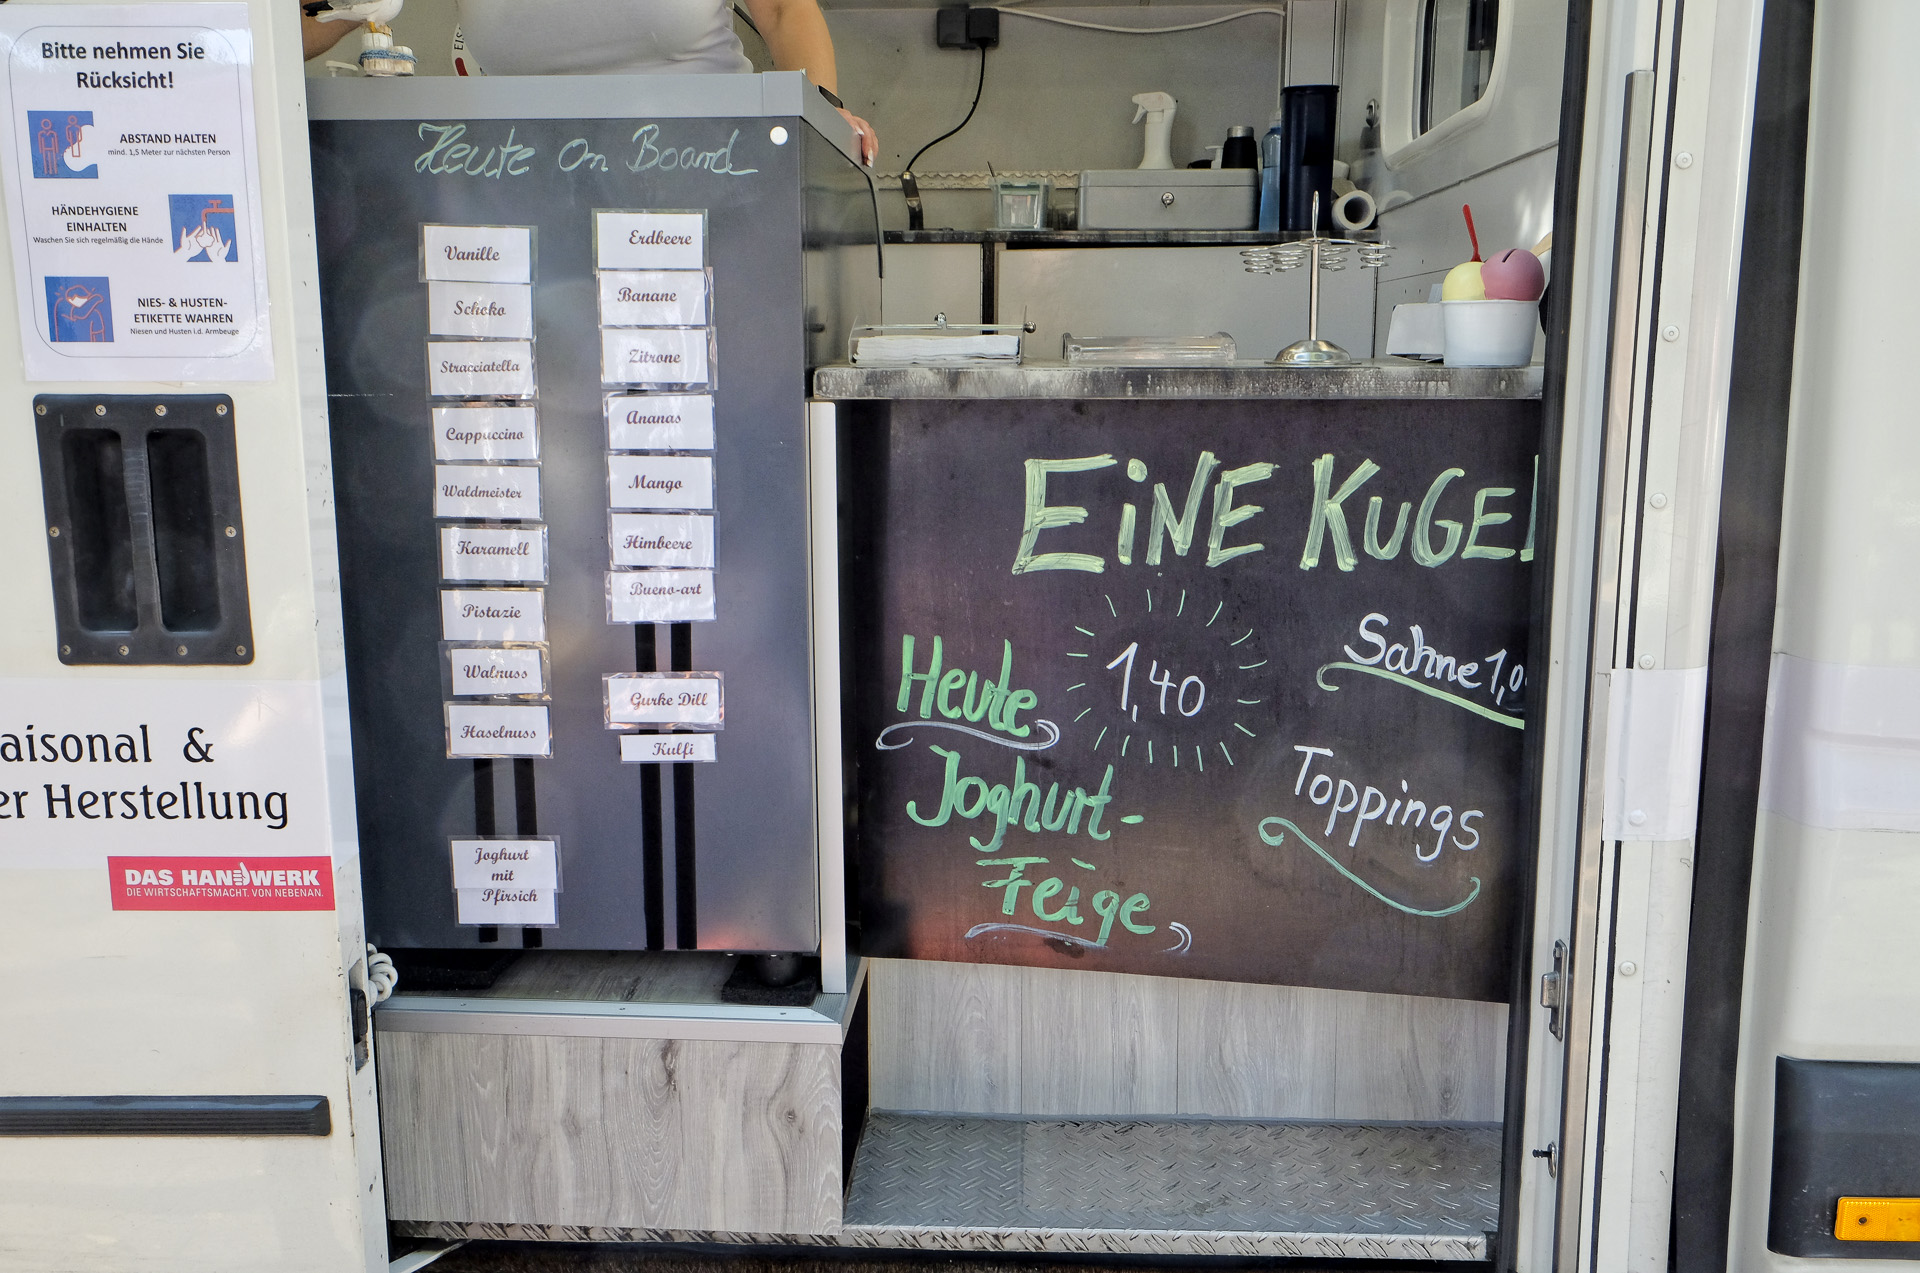 Bitte nehmen Sie
Rücksicht!
ABSTAND HALTEN
mind. 1,5 Meter zur nächsten Person
HÄNDEHYGIENE
EINHALTEN
Waschen Sie sich regelmäßig die Hände
NIES- & HUSTEN-
ETIKETTE WAHREN
Niesen und Husten i.d. Armbeuge
aisonal &
er Herstellung
DAS HANDWERK
DIE WIRTSCHAFTSMACHT. VON NEBENAN.
Heute On Board
Vanille
Schoko
Stracciatella
Cappuccino
Waldmeister
Karamell
Pistazie
Walnuss
Haselnuss
Joghurt
mit
Pfirsich
Erdbeere
Banane
Zitrone
Ananas
Mango
Himbeere
Bueno-art
Gurke Dill
Kulfi
EiNE KUGEL
1,40
Heute
Joghurt-
Feige
Sahne 1,0
Toppings